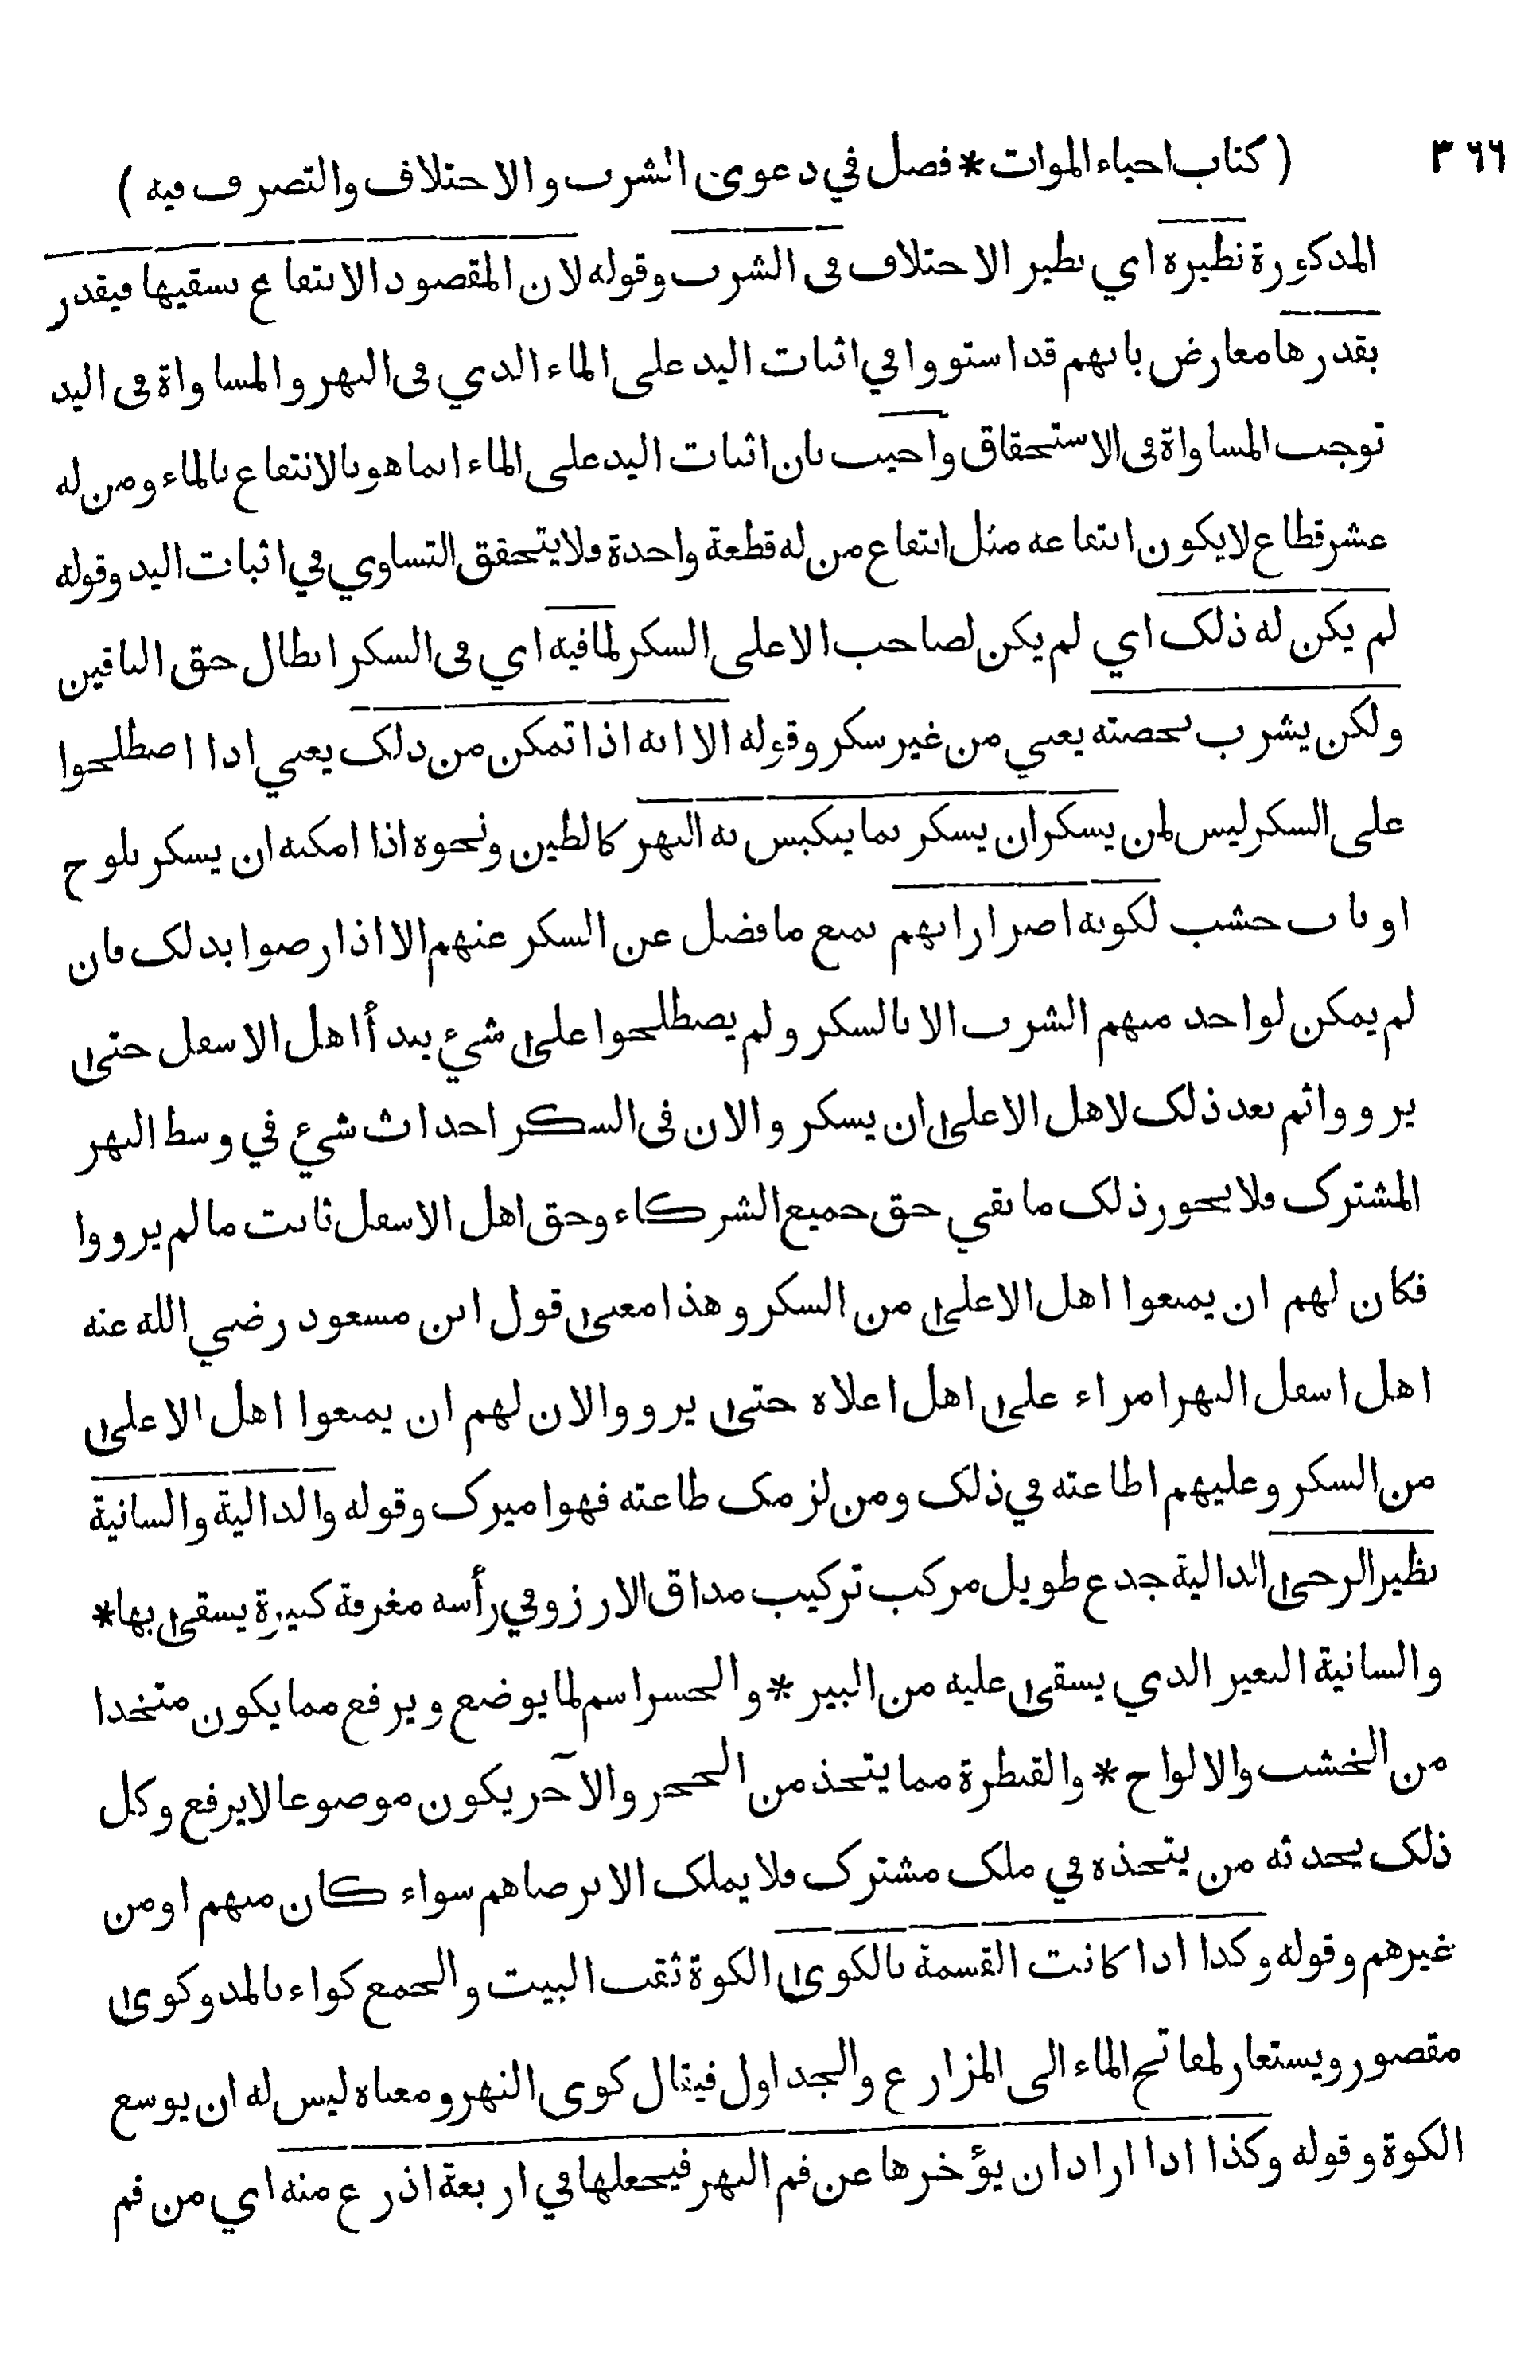 ٣٦٦
( كتاب احياء الموات * فصل في دعوى الشرب والاختلاف والتصرف فيه )
المذكورة نظيره اي نظير الاختلاف في الشرب وقوله لان المقصود الانتفاع بسقيها فيقدر
بقدرها معارض بانهم قد استووا في اثبات اليد على الماء الذي في النهر والمساواة في اليد
توجب المساواة في الاستحقاق واجيب بان اثبات اليد على الماء انما هو بالانتفاع بالماء ومن له
عشر قطاع لا يكون انتفاعه مثل انتفاع من له قطعة واحدة فلا يتحقق التساوي في اثبات اليد وقوله
لم يكن له ذلك اي لم يكن لصاحب الاعلى السكر لما فيه اي في السكر ابطال حق الباقين
ولكن يشرب بحصته يعني من غير سكر وقوله الا انه اذا تمكن من ذلك يعني اذا اصطلحوا
على السكر ليس لمن يسكر ان يسكر بما ينكبس به النهر كالطين ونحوه اذا امكنه ان يسكر بلوح
او باب خشب لكونه اضرارا بهم بمنع ما فضل عن السكر عنهم الا اذا رضوا بذلك فان
لم يمكن لواحد منهم الشرب الا بالسكر ولم يصطلحوا على شيء يبدأ اهل الاسفل حتى
يرووا ثم بعد ذلك لاهل الاعلى ان يسكروا لان في السكر احداث شيء في وسط النهر
المشترك فلا يجوز ذلك ما بقي حق جميع الشركاء وحق اهل الاسفل ثابت ما لم يرووا
فكان لهم ان يمنعوا اهل الاعلى من السكر وهذا معنى قول ابن مسعود رضي الله عنه
اهل اسفل النهر امراء على اهل اعلاه حتى يرووا لان لهم ان يمنعوا اهل الاعلى
من السكر وعليهم اطاعته في ذلك ومن لزمك طاعته فهو اميرك وقوله والدالية والسانية
نظير الرحى الدالية جذع طويل مركب تركيب مداق الارز وفي رأسه مغرفة كبيرة يسقى بها *
والسانية البعير الذي يسقى عليه من البير * والجسر اسم لما يوضع ويرفع مما يكون متخذا
من الخشب والالواح * والقنطرة مما يتخذ من الحجر والآجر يكون موضوعا لا يرفع وكل
ذلك يحدثه من يتخذه في ملك مشترك فلا يملك الا برضاهم سواء كان منهم او من
غيرهم وقوله وكذا اذا كانت القسمة بالكوى الكوة ثقب البيت والجمع كواء بالمد وكوى
مقصور ويستعار لمفاتح الماء الى المزارع والجداول فيقال كوى النهر ومعناه ليس له ان يوسع
الكوة وقوله وكذا اذا اراد ان يؤخرها عن فم النهر فيجعلها في اربعة اذرع منه اي من فم